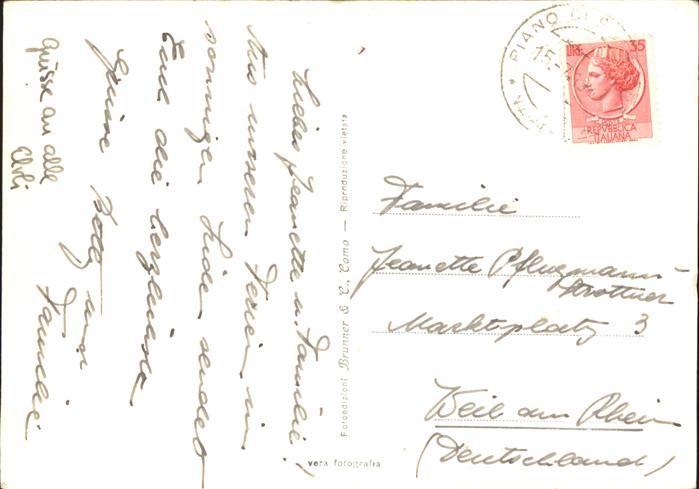 Liebe Jeannette u. Familie!
Aus unseren Ferien im
sonnigen Süden senden
Euch die herzlichsten
Grüsse Betty und
Familie
Grüsse an alle
Elvli
Fotoedizioni Brunner & C., Como — Riproduzione vietata
vera fotografia
PIANO DI S
15-
LIRE 35
POSTE
REPVBBLICA
ITALIANA
Familie
Jeanette Pflugmann-
Strottner
Marktplatz 3
Weil am Rhein
(Deutschland)